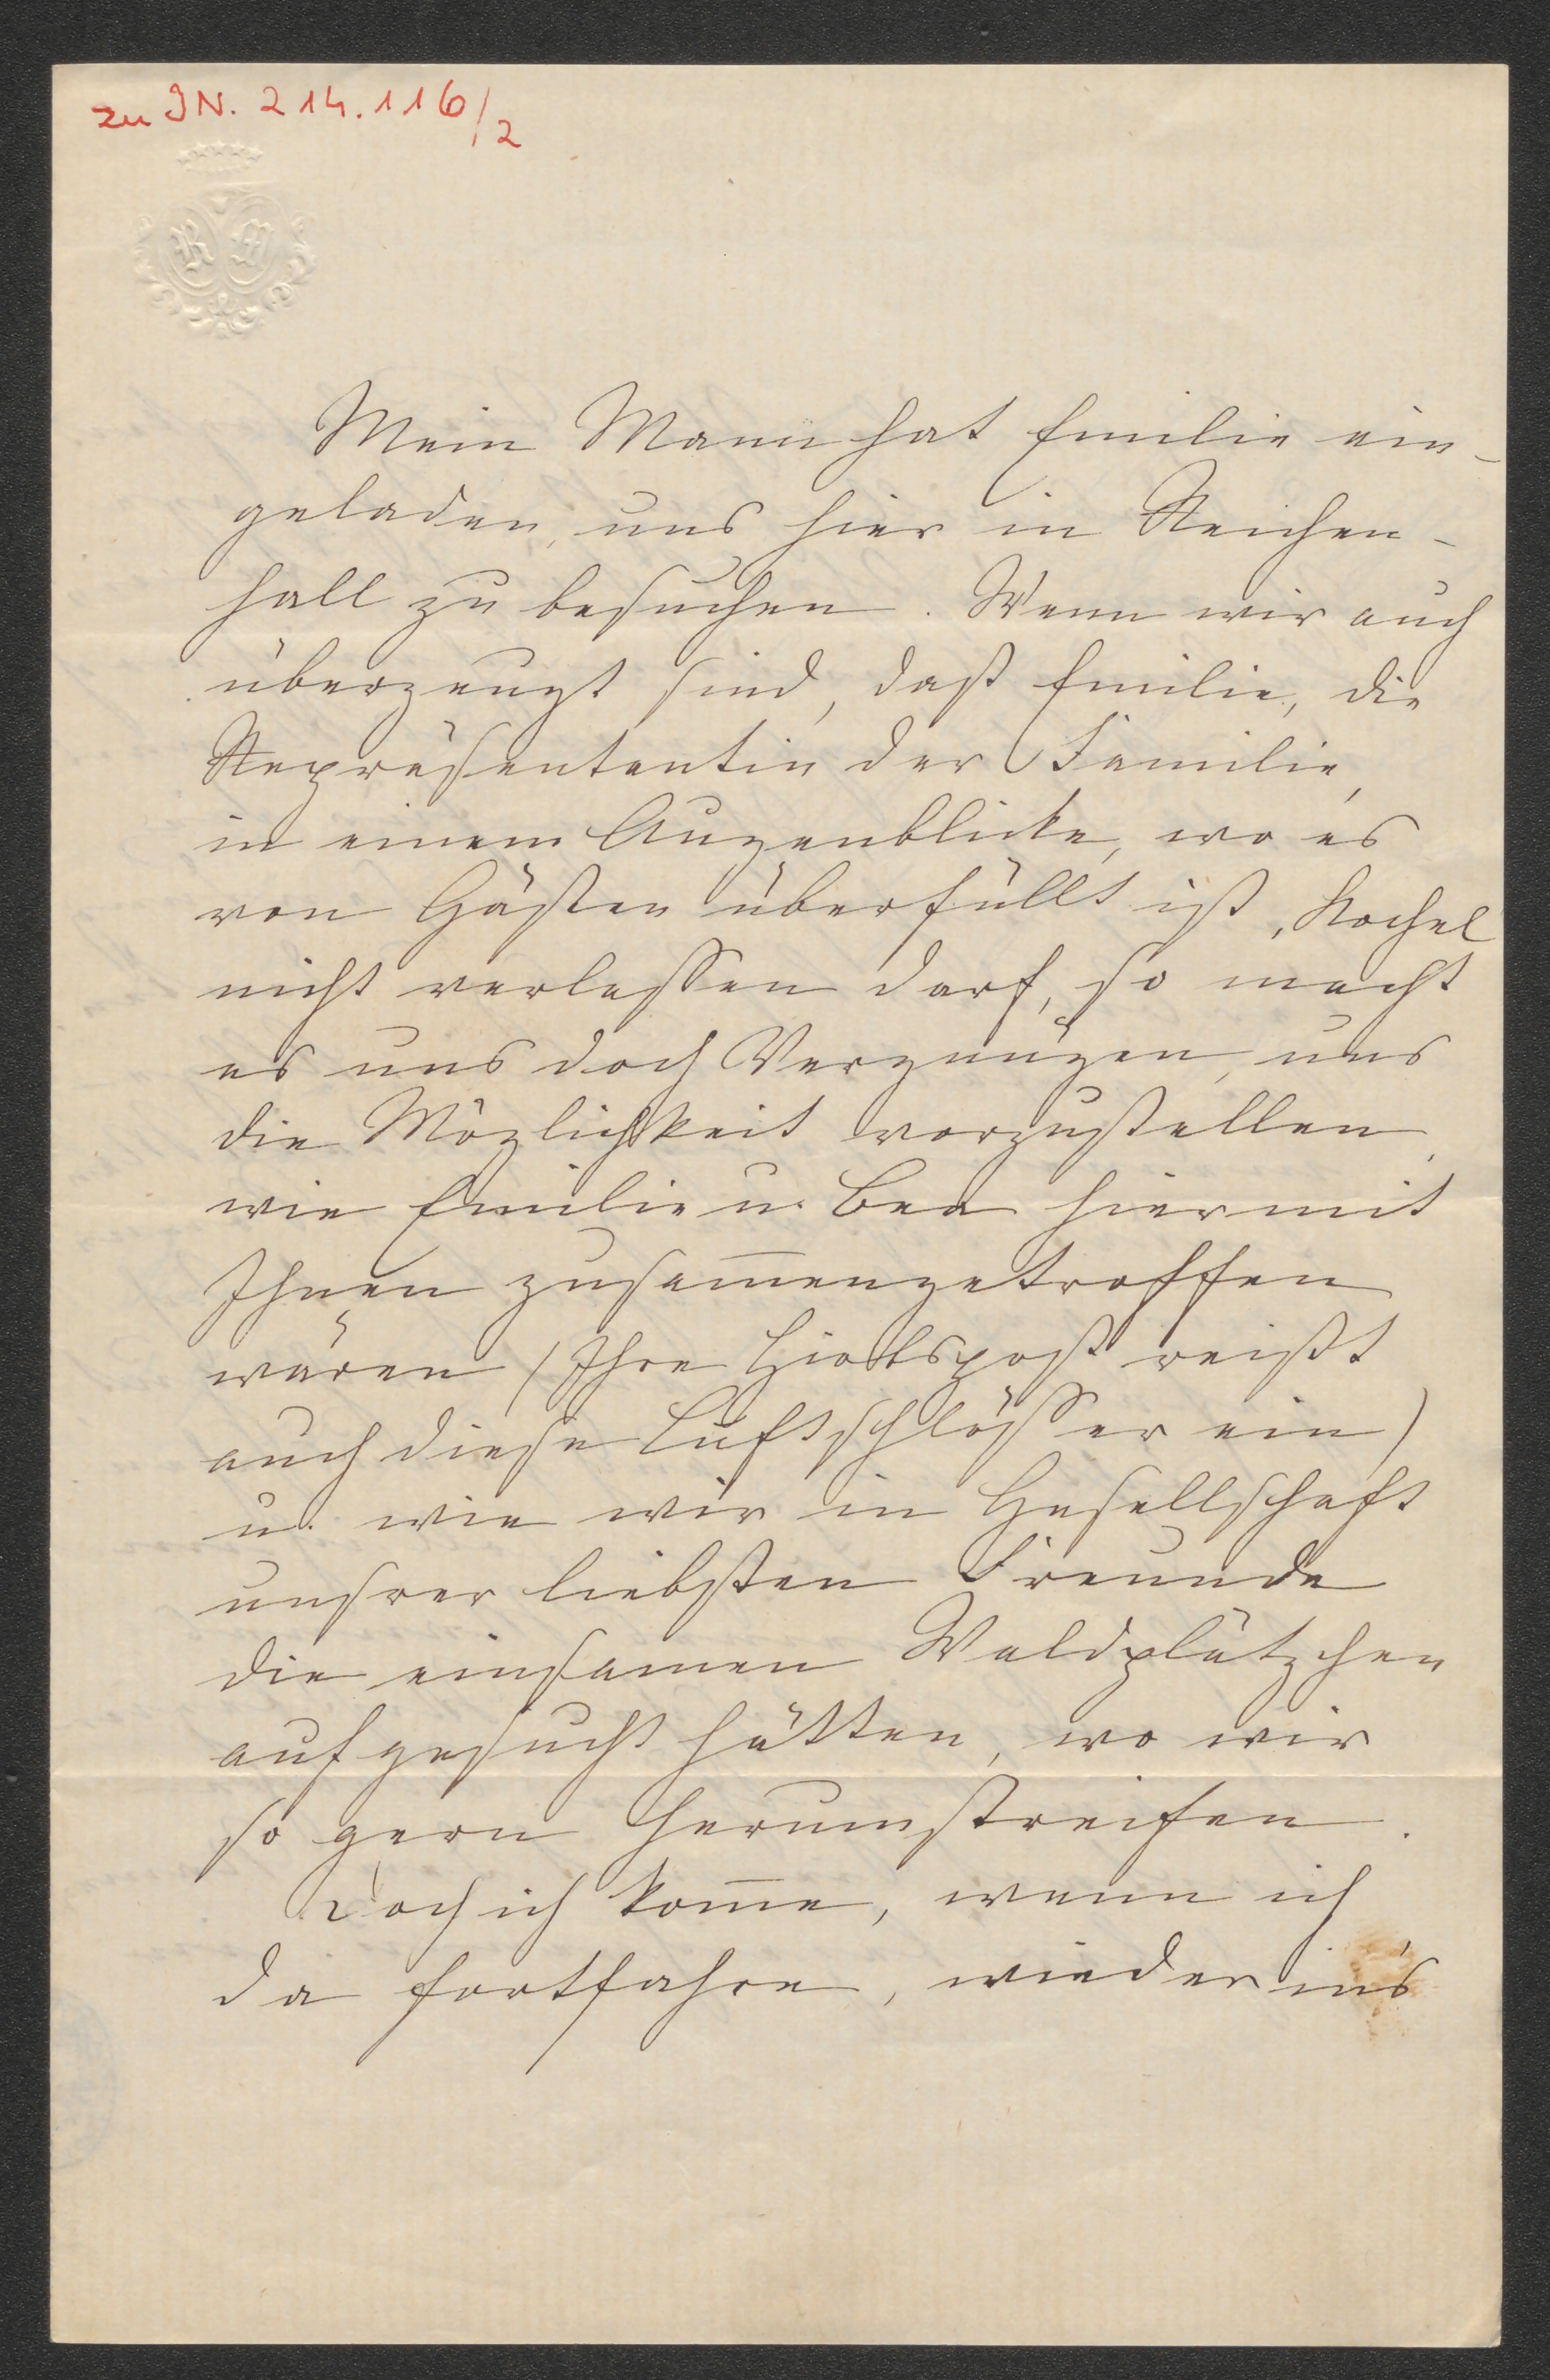 zu IN. 214.116/2
Mein Mann hat Emilie ein-
geladen, uns hier in Reichen-
hall zu besuchen. Wenn wir auch
überzeugt sind, daß Emilie, die
Repräsentantin der Familie,
in einem Augenblicke, wo es
von Gästen überfüllt ist, Kochel
nicht verlassen darf, so macht
es uns doch Vergnügen, uns
die Möglichkeit vorzustellen,
wie Emilie u. Bea hier mit
Ihnen zusam̅engetroffen
wären (Ihre Hiobspost reißt
auch diese Luftschlösser ein)
u. wie wir in Gesellschaft
unsrer liebsten Freunde
die einsamen Waldplätzchen
aufgesucht hätten, wo wir
so gern herumstreifen.
Doch ich kom̅e, wenn ich
da fortfahre, wieder in's